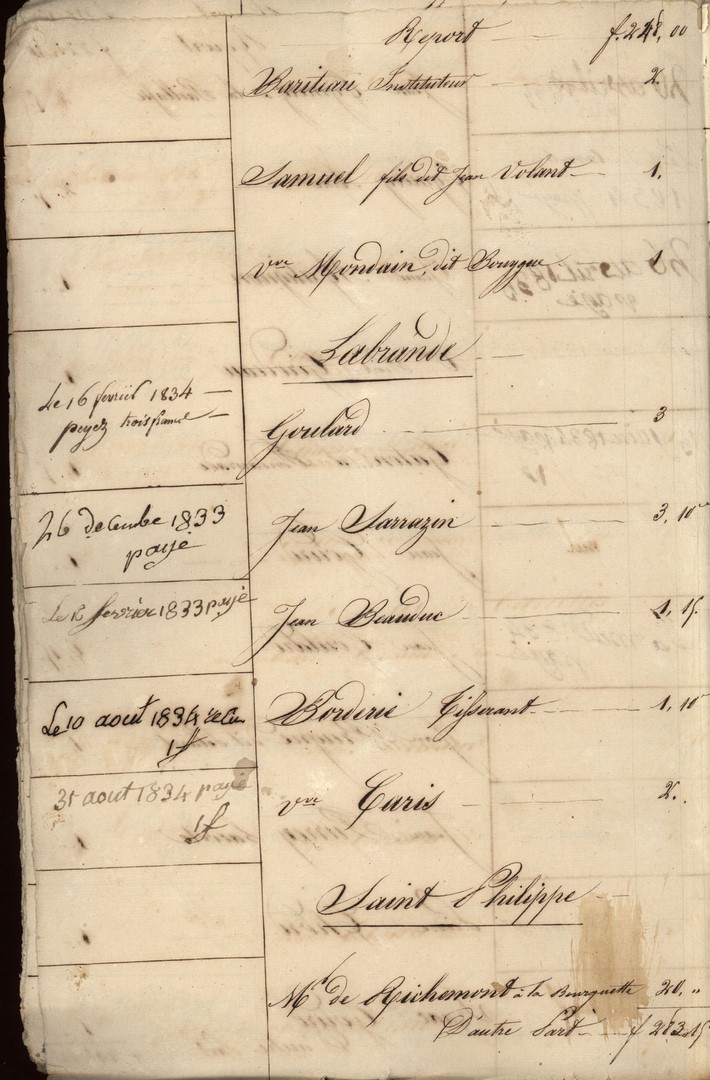 Report f. 248,00
Baritiau Instituteur 2.
Samuel fils dit Jean Volant 1.
Vve Mondain, dit Bouygue 1
Labrande
Le 16 fevriil 1834
peyez trois franc
Goulard 3
26 decembe 1833
payé
Jean Sarrazin 3, 10
Le 12 fevrier 1833 payé
Jean Beauduc 1, 15.
Le 10 aout 1834 recu
1 ff
Borderie Tisserant 1, 10
31 aout 1834 payé
1 f
Vve Caris 2.
Saint Philippe
Mr de Richemont à la Bourguette 20, "
D'autre Part f 283.15